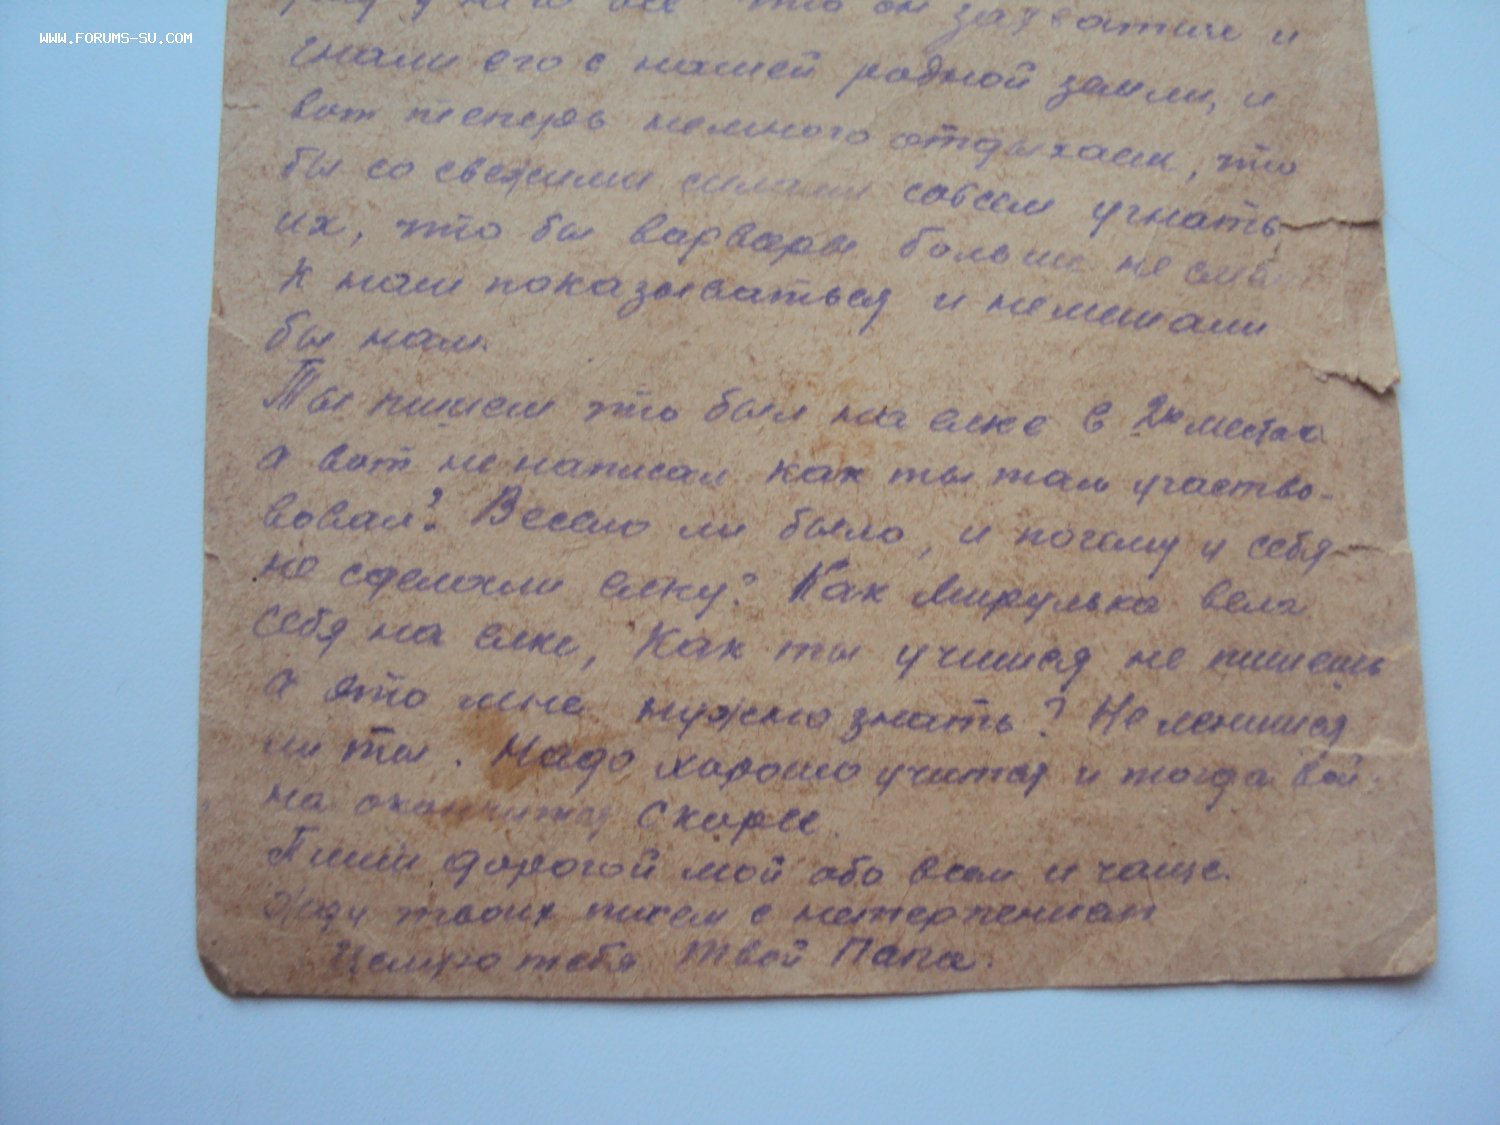 WWW.FORUMS-SU.COM
у него все что он захватил и
гнали его с нашей родной земли, и
вот теперь немного отдыхаем, что
бы со свежими силами совсем угнать
их, что бы варвары больше не
к нам показываться и немешали
бы нам.
Ты пишеш что был на елке в 2х местах
а вот не написал как ты там участво-
вовал? Весело ли было, и почему у себя
не сделали елку? Как Мирулька вела
себя на елке, Как ты учишся не пишешь
а это мне нужно знать? Не ленишся
ли ты. Надо хорошо учится и тогда вой-
на окончится скорее.
Пиши дорогой мой обо всем и чаще.
Жду твоих писем с нетерпением
Целую тебя Твой Папа.